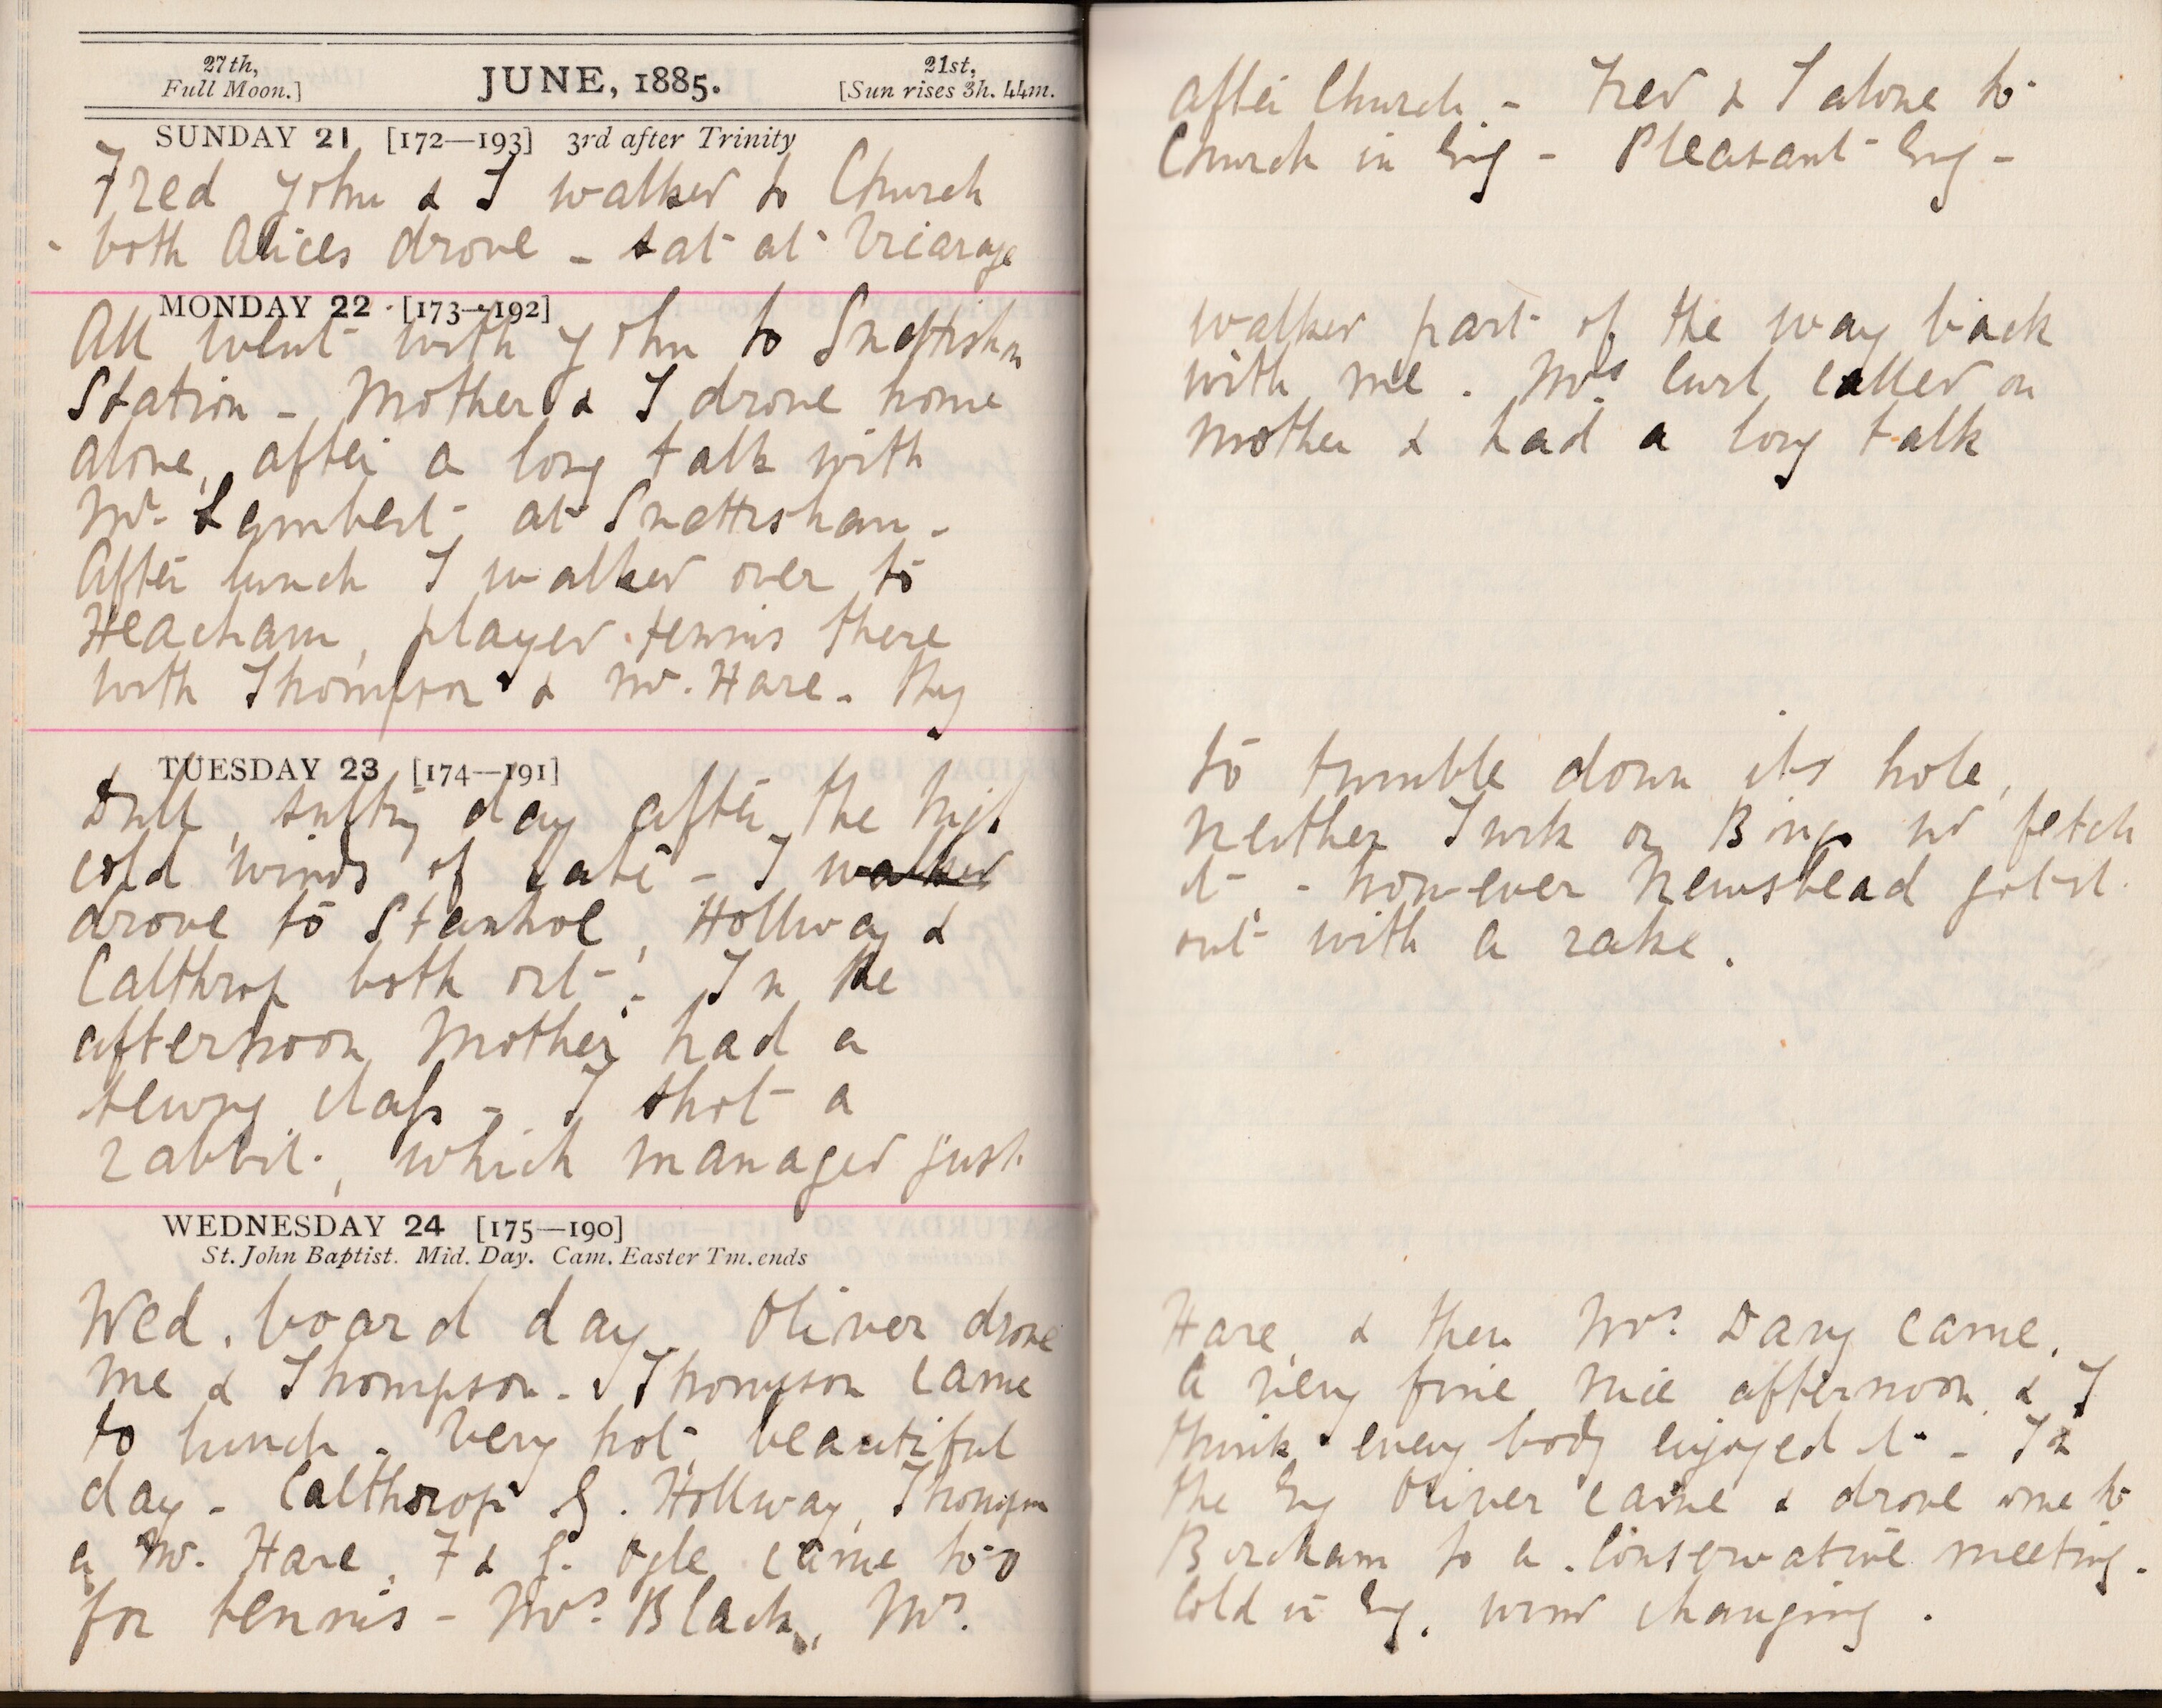 27th,
Full Moon.]
JUNE, 1885.
21st,
[Sun rises 3h. 44m.
SUNDAY 21 [172—193] 3rd after Trinity
Fred John & I walked to Church
- both Alices drove - sat at Vicarage
after Church - Fred & I alone to
Church in Evg - Pleasant Evg -
MONDAY 22 [173—192]
All went with John to Snettisham
Station - Mother & I drove home
alone, after a long talk with
Mr. Lambert at Snettisham -
After lunch I walked over to
Heacham, played tennis there
with Thompson & Mr. Hare - they
walked part of the way back
with me. Mrs. Curl called on
Mother & had a long talk
TUESDAY 23 [174—191]
Dull, sultry day after the high
cold winds of late - I walked
drove to Stanhoe, Hollway &
Calthrop both out! - In the
afternoon Mother had a
sewing class - I shot a
rabbit, which managed just
to tumble down its hole,
neither Turk or Bingo wd fetch
it - however Newstead got it
out with a rake.
WEDNESDAY 24 [175—190]
St. John Baptist. Mid. Day. Cam. Easter Tm. ends
Wed. board day Oliver drove
me & Thompson - Thompson came
to lunch - Very hot beautiful
day - Calthrop G. Hollway, Thompson
& Mr. Hare, F & G. Ogle came too
for tennis - Mrs. Black, Mrs.
Hare & then Mrs. Davy came.
A very fine nice afternoon & I
think every body enjoyed it - In
the Evg Oliver came & drove me to
Bircham to a Conservative meeting.
Cold in Evg, wind changing.